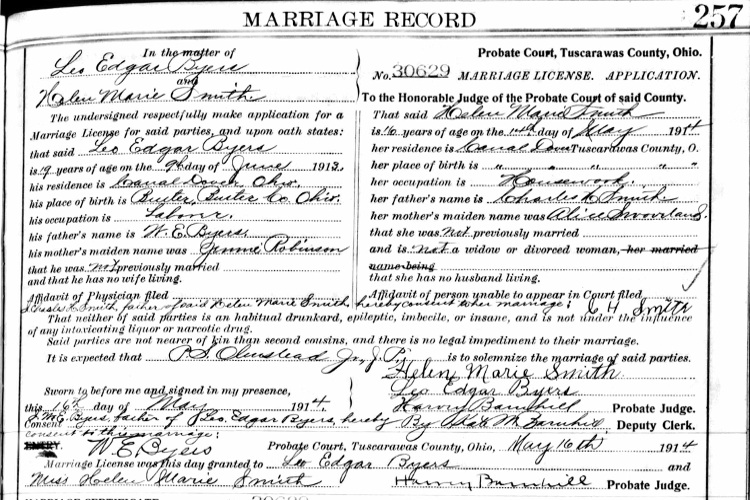 MARRIAGE RECORD
257
In the matter of
Leo Edgar Byers
and
Helen Marie Smith
The undersigned respectfully make application for a
Marriage License for said parties, and upon oath states:
that said Leo Edgar Byers
is 19 years of age on the 9th day of June 1913.
his residence is Canal Dover, Ohio.
his place of birth is Butler, Butler Co Ohio.
his occupation is Laborer.
his father's name is W. E. Byers
his mother's maiden name was Jennie Robinson
that he was not previously married
and that he has no wife living.
Affidavit of Physician filed
Probate Court, Tuscarawas County, Ohio.
No. 30629 MARRIAGE LICENSE. APPLICATION.
To the Honorable Judge of the Probate Court of said County.
That said Helen Marie Smith
is 16 years of age on the day of May 1914
her residence is Canal Dover Tuscarawas County, O.
her place of birth is " " " "
her occupation is Housework
her father's name is Charles H Smith
her mother's maiden name was Alice
that she was not previously married
and is not a widow or divorced woman, her married
name being
that she has no husband living.
Affidavit of person unable to appear in Court filed
Smith, father of said Helen Marie Smith, hereby consent to her marriage: C H Smith
That neither of said parties is an habitual drunkard, epileptic, imbecile, or insane, and is not under the influence
of any intoxicating liquor or narcotic drug.
Said parties are not nearer of kin than second cousins, and there is no legal impediment to their marriage.
It is expected that Olmstead Jr, J. P. is to solemnize the marriage of said parties.
Helen Marie Smith
Leo Edgar Byers
Sworn to before me and signed in my presence,
this 16th day of May 1914.
Harry Barnhill Probate Judge.
Consent W. E. Byers, father of Leo Edgar Byers, hereby By Deputy Clerk.
consent to this marriage:
W E Byers
ENTRY. Probate Court, Tuscarawas County, Ohio, May 16th 1914
Marriage License was this day granted to Leo Edgar Byers and
Miss Helen Marie Smith Harry Barnhill Probate Judge.
MARRIAGE CERTIFICATE
30629